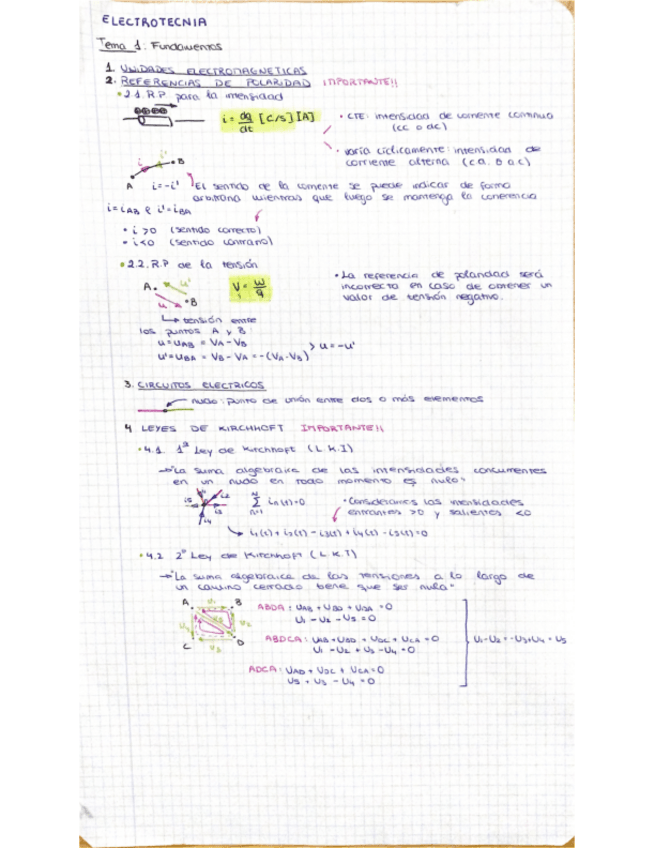 ELECTROTECNIA
Tema 1: Fundamentos
1. UNIDADES ELECTROMAGNETICAS
2. REFERENCIAS DE POLARIDAD IMPORTANTE!!
• 2.1. R.P. para la intensidad
i = dq/dt [C/S] [A]
• CTE: intensidad de corriente continua
(cc o dc)
• varía cíclicamente: intensidad de
corriente alterna (c.a. o ac)
A B i i' i=-i'
El sentido de la corriente se puede indicar de forma
arbitraria mientras que luego se mantenga la coherencia
i=iAB e i'=iBA
• i>0 (sentido correcto)
• i<0 (sentido contrario)
• 2.2. R.P de la tensión
A u' u B
V = W/q
• La referencia de polaridad será
incorrecta en caso de obtener un
valor de tensión negativo.
tensión entre
los puntos A y B:
u=uAB = VA-VB
u'=uBA = VB-VA =-(VA-VB)
> u=-u'
3. CIRCUITOS ELECTRICOS
nudo: punto de unión entre dos o más elementos
4. LEYES DE KIRCHHOFT IMPORTANTE!!
• 4.1. 1ª Ley de Kirchhoft (L.K.I)
→ "La suma algebraica de las intensidades concurrentes
en un nudo en todo momento es nula"
N Σ n=1 in(t)=0
• Consideramos las intensidades
entrantes >0 y salientes <0
i1(t) + i2(t) - i3(t) + i4(t) - i5(t)=0
• 4.2 2ª Ley de Kirchhoft (L.K.T)
→ "La suma algebraica de las tensiones a lo largo de
un camino cerrado tiene que ser nula"
A B C D
ABDA: UAB + UBD + UDA = 0
U1 - U2 - U5 = 0
ABDCA: UAB + UBD + UDC + UCA = 0
U1 - U2 + U3 - U4 = 0
U1-U2 = -U3+U4 = U5
ADCA: UAD + UDC + UCA = 0
U5 + U3 - U4 = 0